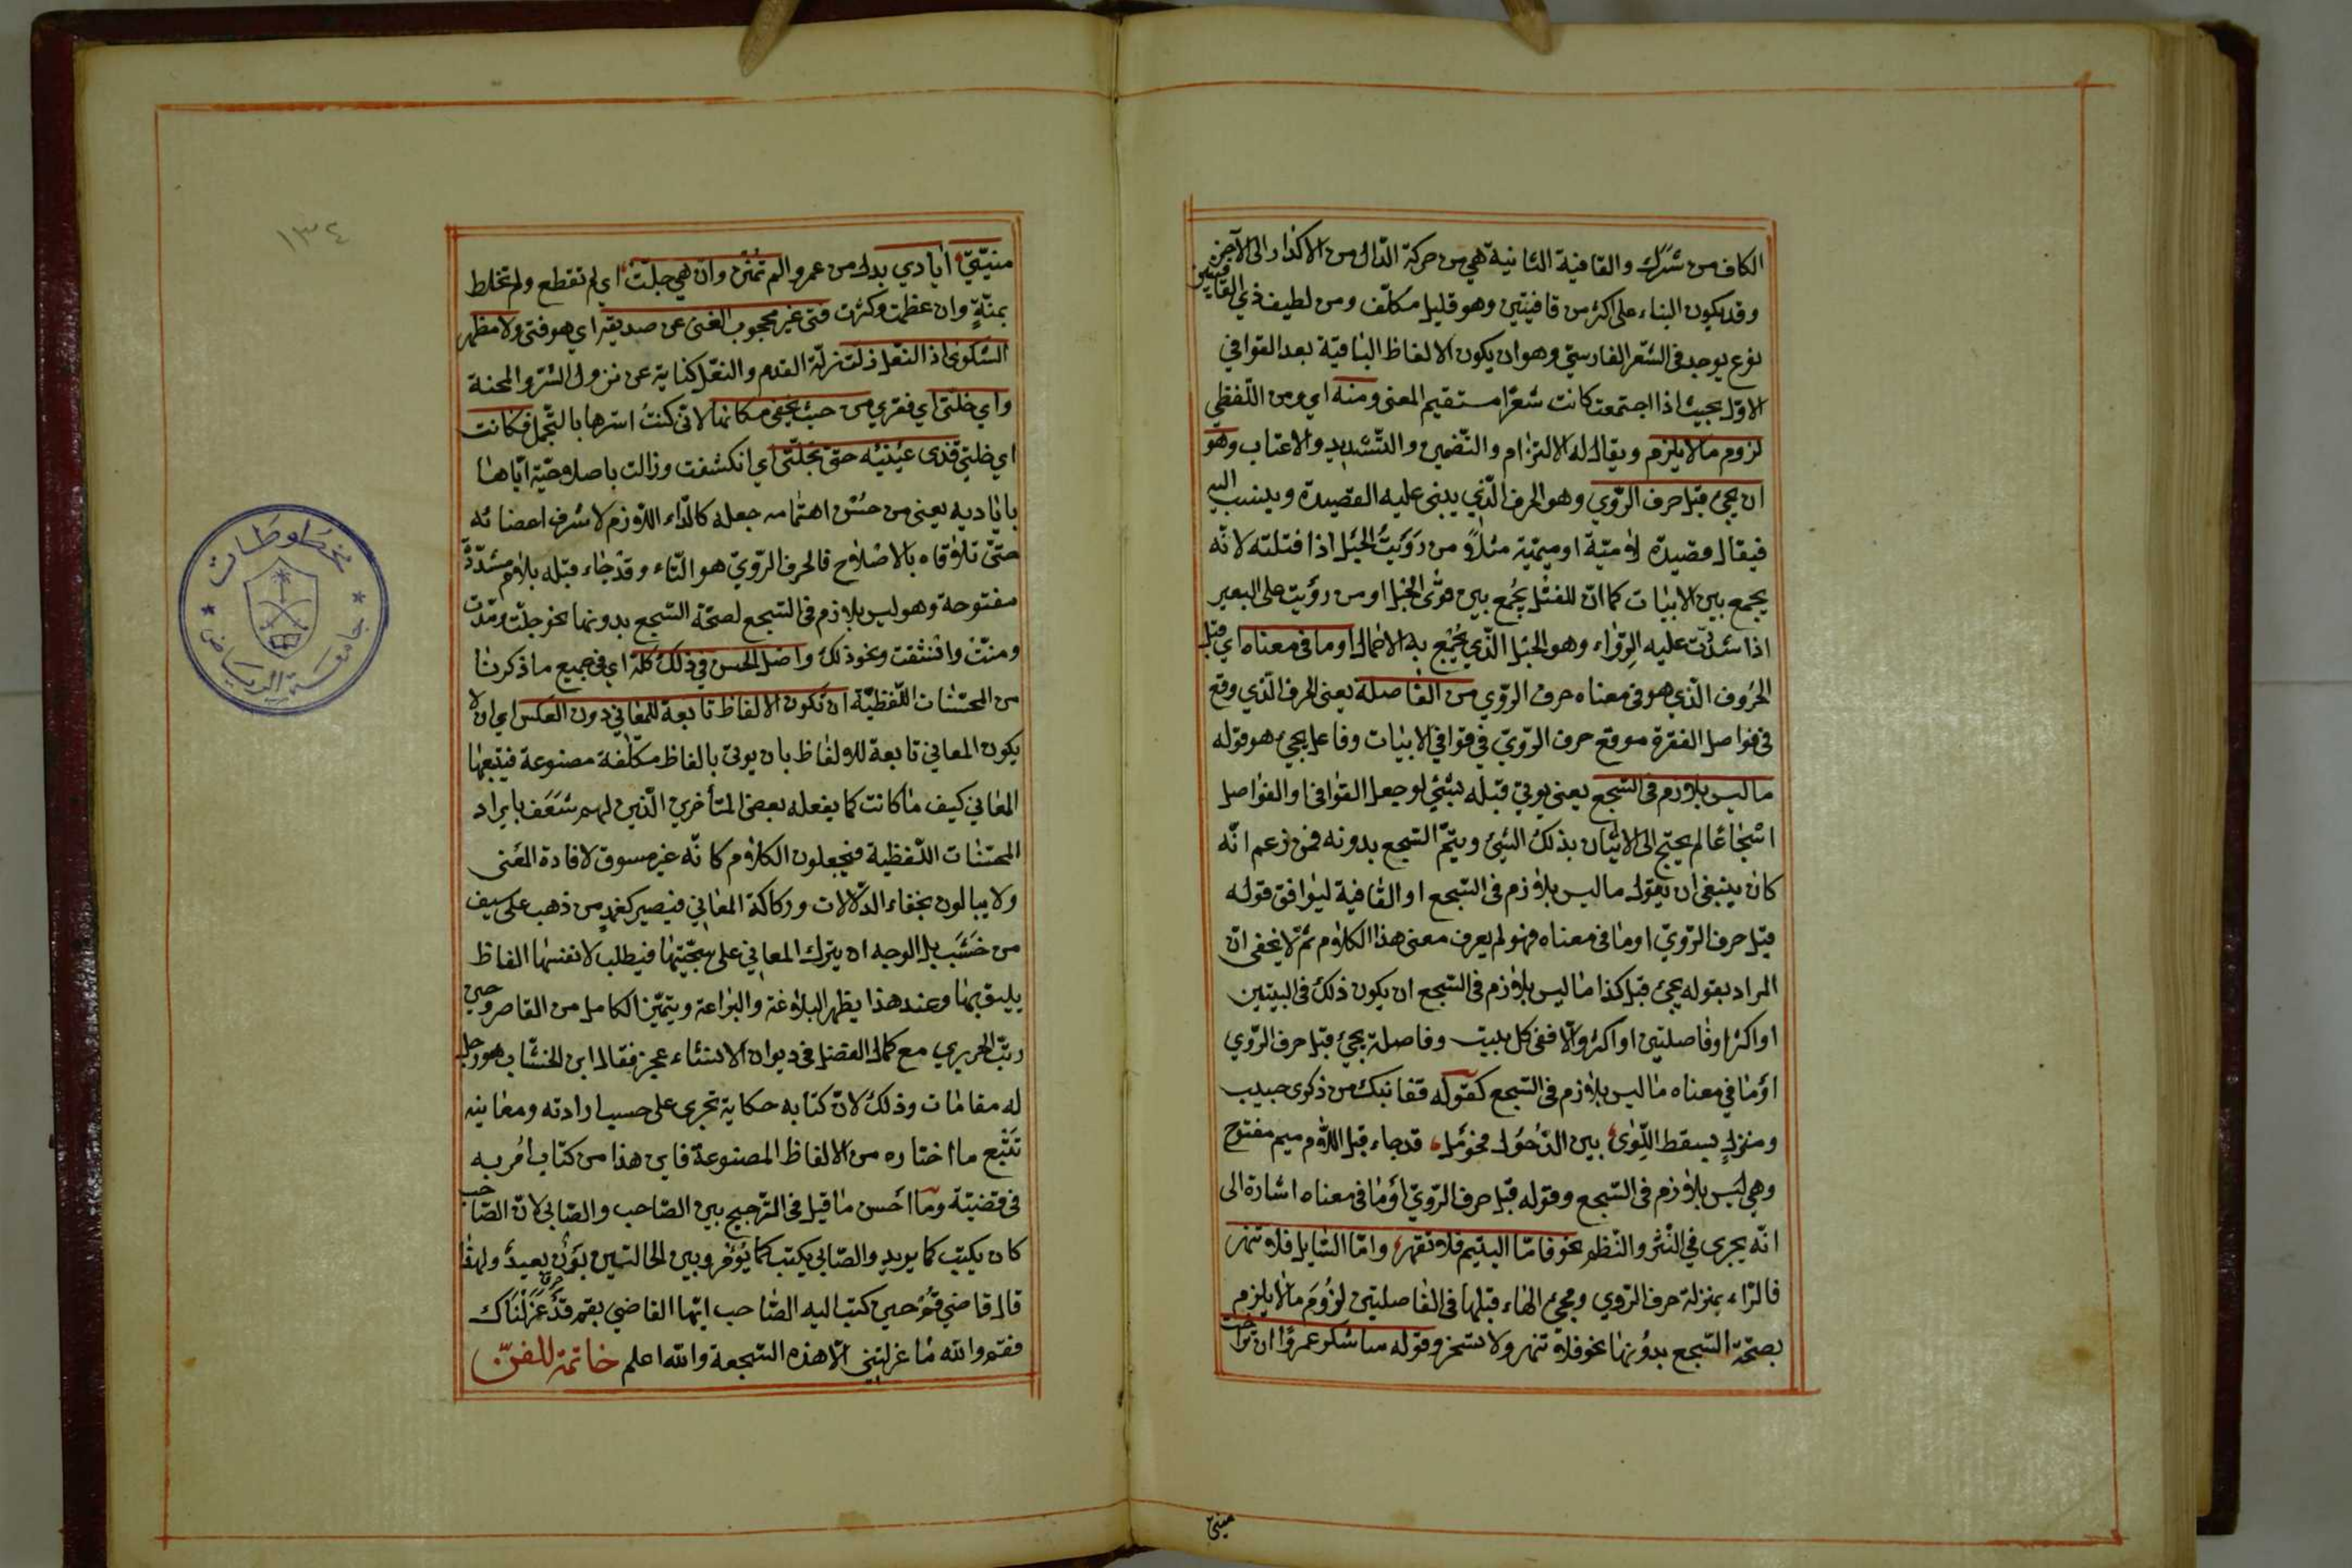 الكاف من شرك والقافية الثانية هي من حركة الدال من الاكدار الى الآخر
وقد يكون البناء على اكثر من قافيتين وهو قليل متكلف ومن لطيف ذي القافيتين
نوع يوجد في الشعر الفارسي وهو ان يكون الالفاظ الباقية بعد القوافي
الاول بحيث اذا اجتمعت كانت شعرا مستقيم المعنى ومنه اي ومن اللفظي
لزوم ما لا يلزم ويقال له الالتزام والتضمين والتشديد والاعنات وهو
ان يجئ قبل حرف الروي وهو الحرف الذي يبنى عليه القصيدة وينسب اليه
فيقال قصيدة لامية او ميمية مثلا من رويت الحبل اذا فتلته لانه
يجمع بين الابيات كما ان للفتل يجمع بين قوى الحبل او من رويت على البعير
اذا شددت عليه الرواء وهو الحبل الذي يجمع به الاحمال او ما في معناه اي قبل
الحروف الذي هو في معناه حرف الروي من الفاصلة يعني الحرف الذي وقع
في فواصل الفقرة موقع حرف الروي في قوافي الابيات وفاعل يجئ هو قوله
ما ليس بلازم في السجع يعني يوتي قبله بشئي لو جعل القوافي او الفواصل
اسجاعا لم يحتج الى الاتيان بذلك الشئ ويتم السجع بدونه فمن زعم انه
كان ينبغي ان يقول ما ليس بلازم في السجع او القافية ليوافق قوله
قبل حرف الروي او ما في معناه فهو لم يعرف معنى هذا الكلام ثم لا يخفى ان
المراد بقوله يجئ قبل كذا ما ليس بلازم في السجع ان يكون ذلك في البيتين
او اكثر او فاصلتين او اكثر والا ففي كل بيت وفاصلة يجئ قبل حرف الروي
او ما في معناه ما ليس بلازم في السجع كقوله قفا نبك من ذكرى حبيب
ومنزل بسقط اللوى بين الدخول فحومل قد جاء قبل اللام ميم مفتوح
وهي ليس بلازم في السجع وقوله قبل حرف الروي او ما في معناه اشارة الى
انه يجري في النثر والنظم نحو فاما اليتيم فلا تقهر واما السايل فلا تنهر
فالراء بمنزلة حرف الروي ومجئ الهاء قبلها في الفاصلتين لزوم ما لا يلزم
بصحة السجع بدونها نحو فلا تنهر ولا تسخر وقوله ساشكر عمروا ان تراخت
منيتي
منيتي ايادي بدل من عمرو الم تمنن وان هي جلت اي لم تقطع ولم تخلط
بمنة وان عظمت وكثرت فتى غير محجوب الغنى عن صديقه اي هو فتى ولا مظهر
الشكوى اذ النعل زلت زلة القدم والنعل كناية عن نزول الشر والمحنة
راي خلتي اي فقري من حيث يخفى مكانها لاني كنت استرها بالتجمل فكانت
اي خلتي قذى عينيه حتى تجلت اي انكشفت وزالت باصلاحية اياها
باياديه يعني من حسن اهتمامه جعله كالداء اللازم لاشرف اعضائه
حتى تلاقاه بالاصلاح فالحرف الروي هو التاء وقد جاء قبله بلام مشددة
مفتوحة وهو ليس بلازم في السجع لصحة السجع بدونها نحو جلت ومدت
ومنت وانشقت ونحو ذلك واصل الحسن في ذلك كله اي في جميع ما ذكرنا
من المحسنات اللفظية ان تكون الالفاظ تابعة للمعاني دون العكس اي ان لا
يكون المعاني تابعة للالفاظ بان يوتى بالفاظ متكلفة مصنوعة فيتبعها
المعاني كيف ما كانت كما يفعله بعض المتأخرين الذين لهم شعف بايراد
المحسنات اللفظية فيجعلون الكلام كانه غير مسوق لافادة المعنى
ولا يبالون بخفاء الدلالات وركاكة المعاني فيصير كغمد من ذهب على سيف
من خشب بل الوجه ان يترك المعاني على سجيتها فيطلب لانفسها الفاظ
يليق بها وعند هذا يظهر البلاغة والبراعة ويتميز الكامل من القاصر وحين
رتب الحريري مع كمال الفضل في ديوان الانشاء عجز فقال ابن الخشاب هو رجل
له مقامات وذلك لان كتابه حكاية تجري على حسب ارادته ومعانيه
تتبع ما اختاره من الالفاظ المصنوعة فاين هذا من كتاب امر به
في قضية وما احسن ما قيل في الترجيح بين الصاحب والصابي لان الصاحب
كان يكتب كما يريد والصابي يكتب كما يؤمر وبين الحالتين بون بعيد ولهذا
قال قاضي قم حين كتب اليه الصاحب ايها القاضي بقم قد عزلناك
فقم والله ما عزلتني الا هذه السجعة والله اعلم خاتمة للفن
١٣٤
مخطوطات
جامعة الرياض